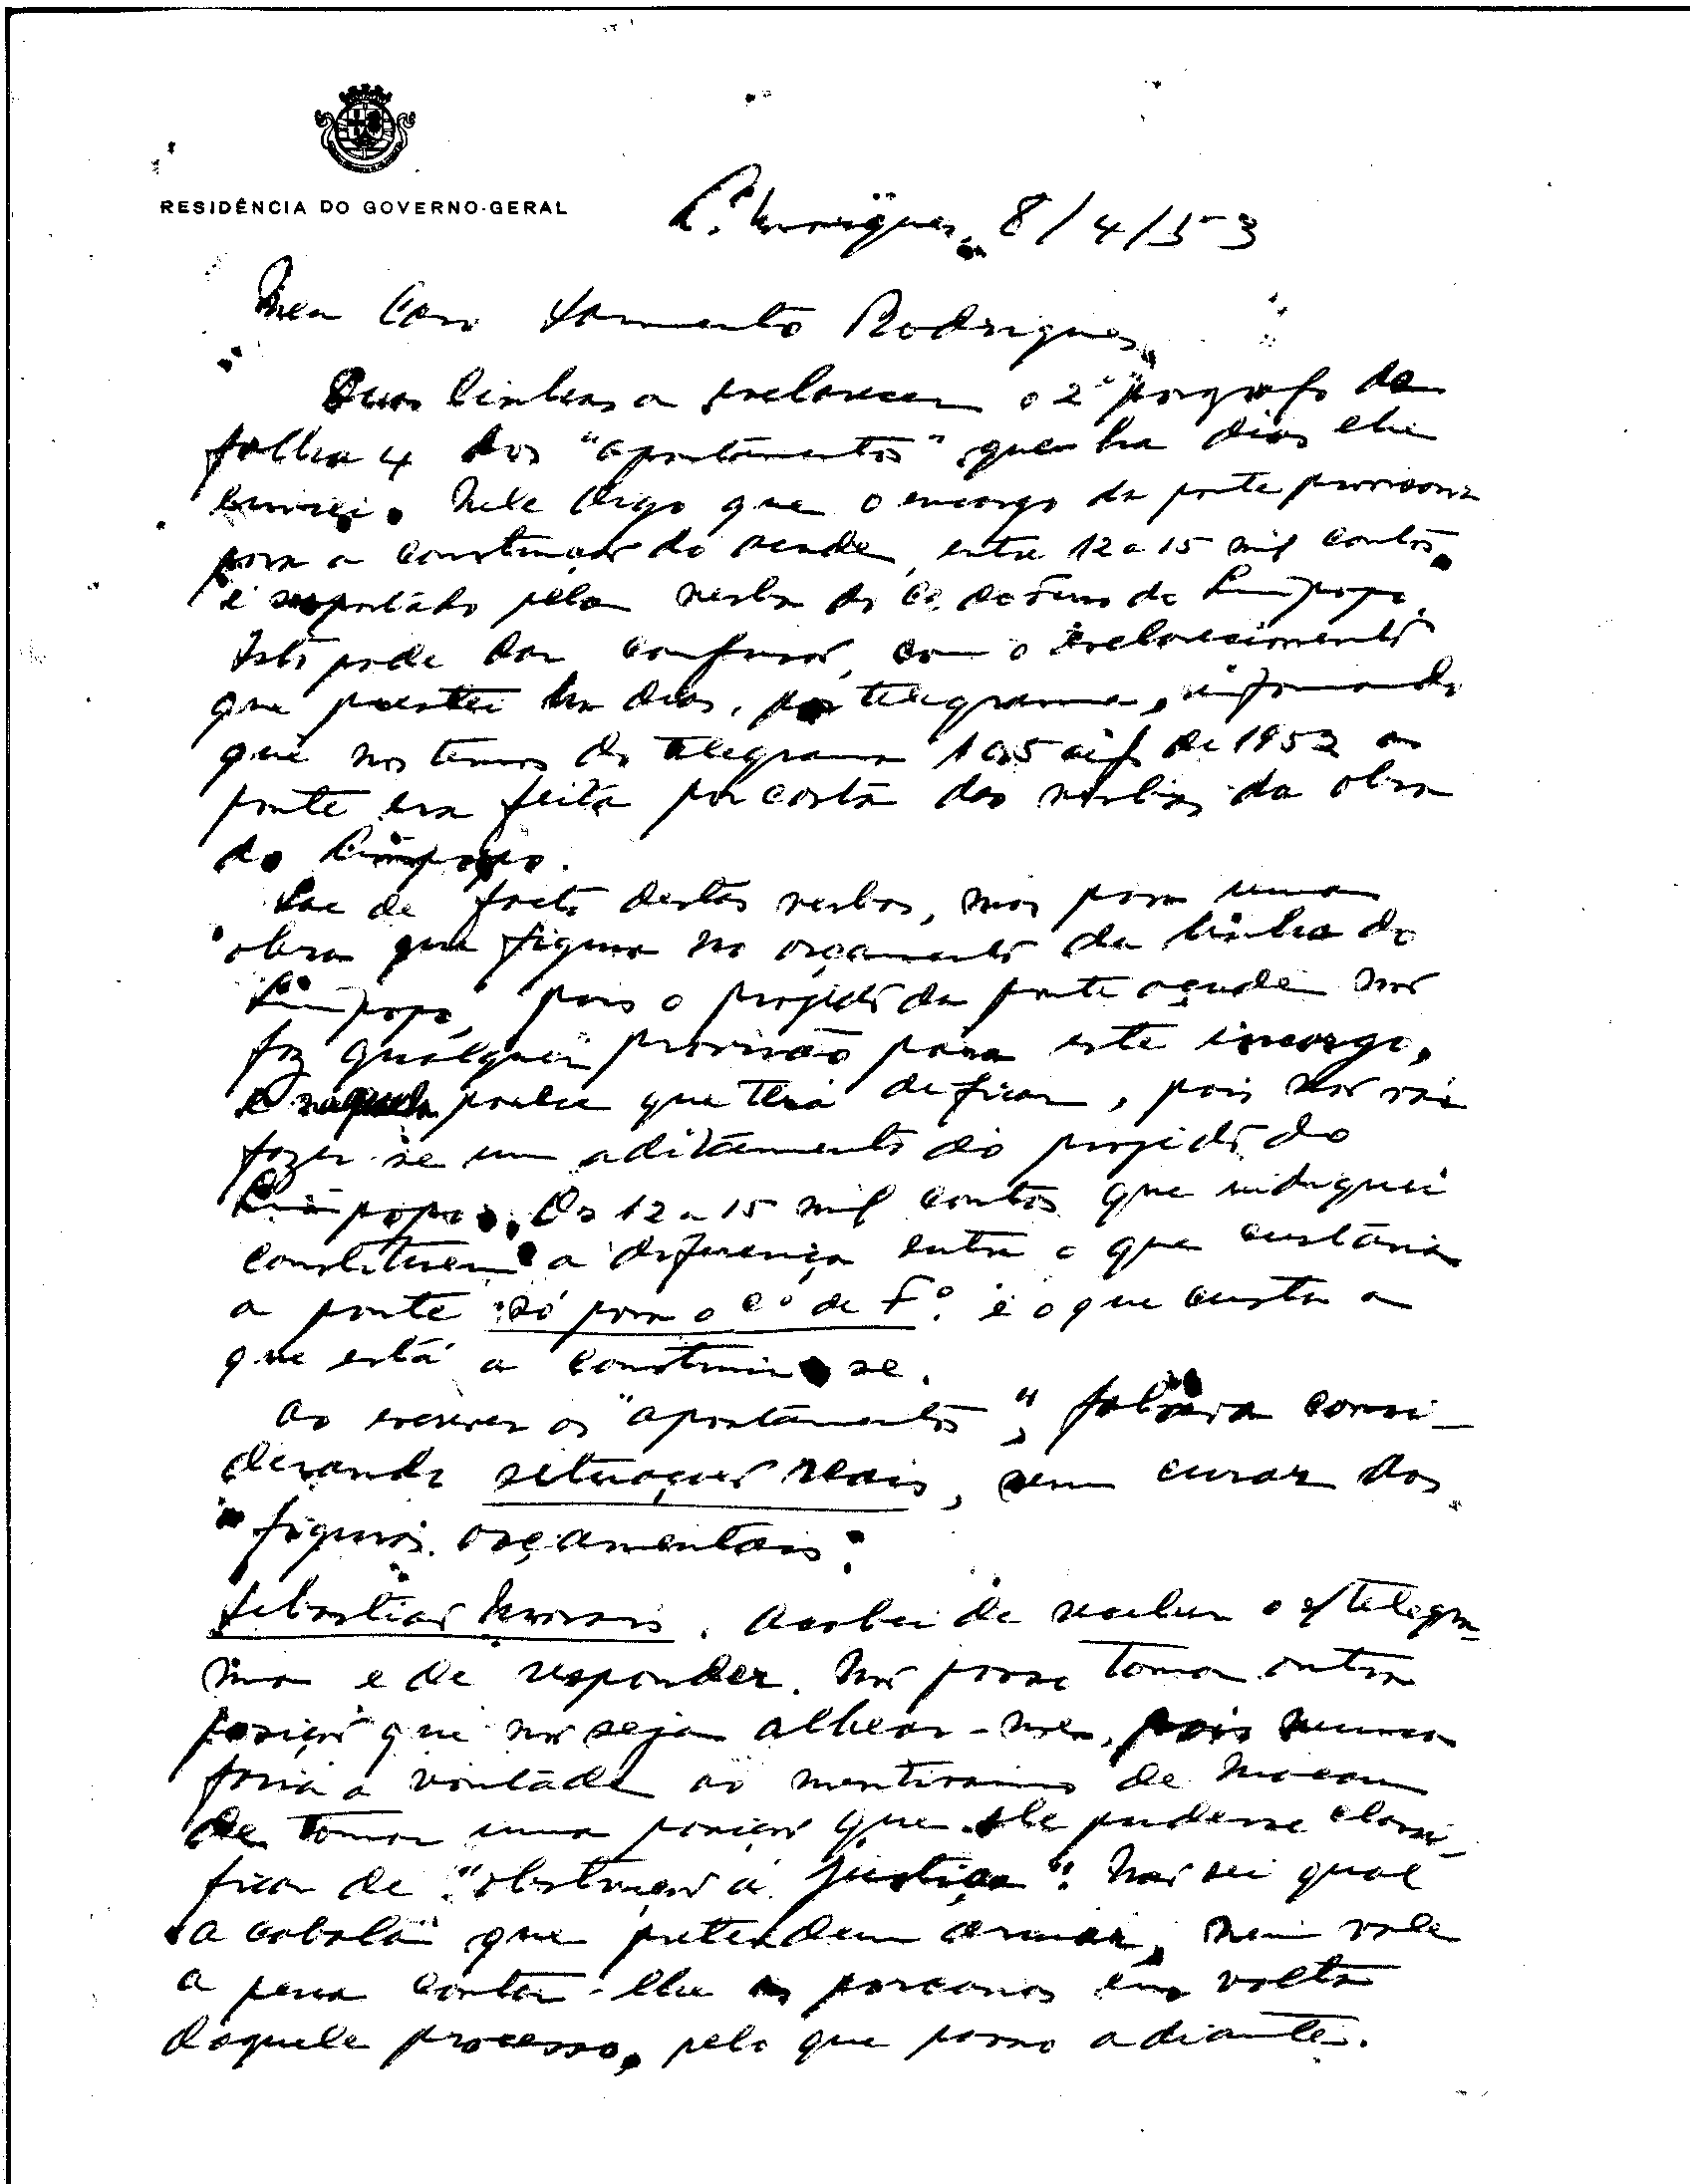 RESIDÊNCIA DO GOVERNO-GERAL
L. Marques, 8/4/53
Meu Caro Sarmento Rodrigues
Duas linhas a esclarecer o 2º parágrafo da
folha 4 dos "apontamentos" que ha dias lhe
enviei. Nele digo que o encargo da ponte provisoria
para a construção do açude, entre 12 a 15 mil contos,
é suportado pela verba do Cº de ferro do Limpopo.
Isto pode dar confusão, com o esclarecimento
que prestei ha dias, por telegrama, informando
que nos termos do telegrama cif de 1952 a
ponte era feita por conta das verbas da obra
do Limpopo.
Sae de facto destas verbas, mas para uma
obra que figura no orçamento da linha do
Limpopo, pois o projecto da ponte açude não
faz qualquer provisão para este encargo,
e naquela ponte que terá de ficar, pois não vai
fazer-se um aditamento ao projecto do
Limpopo. Os 12 a 15 mil contos que indiquei
constituem a diferença entre o que custaria
a ponte só para o cº de Fº. e o que custa a
que está a construir-se.
Ao escrever os "apontamentos", falava consi-
derando situações reais, sem curar das
"figuras orçamentais".
Sebastião Morais. Acabei de receber o s/ telegra-
ma e de responder. Não posso tomar outra
posição que não seja alhear-me, pois nunca
faria a vontade ao mentiroso de Macau
de tomar uma posição que ele pudesse classi-
ficar de "obstrução à justiça". Não sei qual
a cabala que pretendem armar, nem vale
a pena contar-lhe as porcarias em volta
daquele processo, pelo que passo adiante.